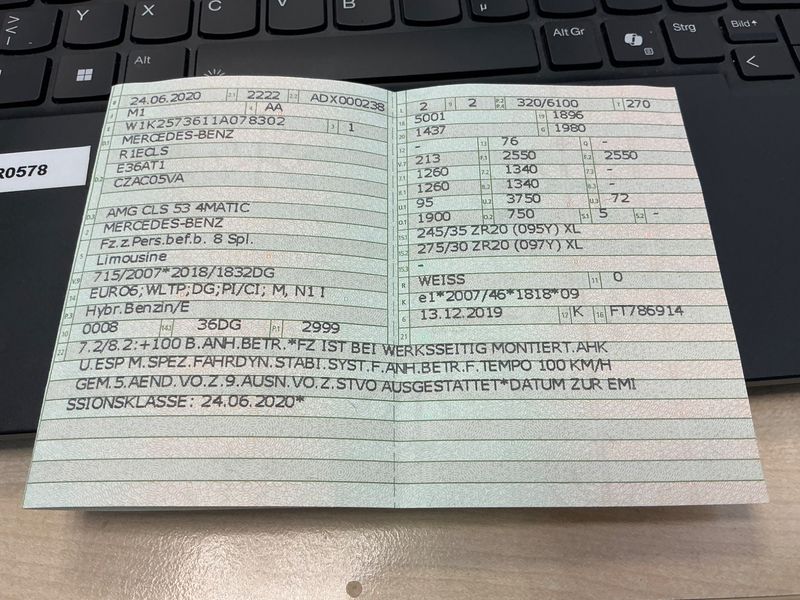 Y X C V B µ Alt Gr Strg Bild
Alt <
R0578
B 24.06.2020 2.1 2222 2.2 ADX000238
M1 4 AA
E W1K2573611A078302 3 1
D.1 MERCEDES-BENZ
R1ECLS
D.2 E36AT1
CZAC05VA
D.3 AMG CLS 53 4MATIC
2 MERCEDES-BENZ
5 Fz.z.Pers.bef.b. 8 Spl.
Limousine
V.9 715/2007*2018/1832DG
14 EURO6;WLTP;DG;PI/CI; M, N1 I
P.3 Hybr.Benzin/E
10 0008 14.1 36DG P.1 2999
2 9 2 P.2 P.4 320/6100 T 270
18 5001 19 1896
20 1437 G 1980
12 - 13 76 Q -
V.7 213 F.1 2550 F.2 2550
7.1 1260 7.2 1340 7.3 -
8.1 1260 8.2 1340 8.3 -
U.1 95 U.2 3750 U.3 72
O.1 1900 O.2 750 S.1 5 S.2 -
15.1 245/35 ZR20 (095Y) XL
15.2 275/30 ZR20 (097Y) XL
15.3 -
R WEISS 11 0
K e1*2007/46*1818*09
6 13.12.2019 17 K 16 FT786914
21
22 7.2/8.2:+100 B.ANH.BETR.*FZ IST BEI WERKSSEITIG MONTIERT.AHK
U.ESP M.SPEZ.FAHRDYN.STABI.SYST.F.ANH.BETR.F.TEMPO 100 KM/H
GEM.5.AEND.VO.Z.9.AUSN.VO.Z.STVO AUSGESTATTET*DATUM ZUR EMI
SSIONSKLASSE: 24.06.2020*